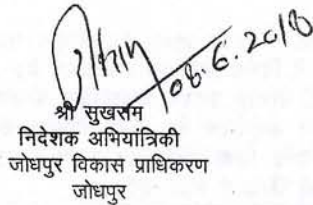 08.6.2018
श्री सुखराम
निदेशक अभियांत्रिकी
जोधपुर विकास प्राधिकरण
जोधपुर